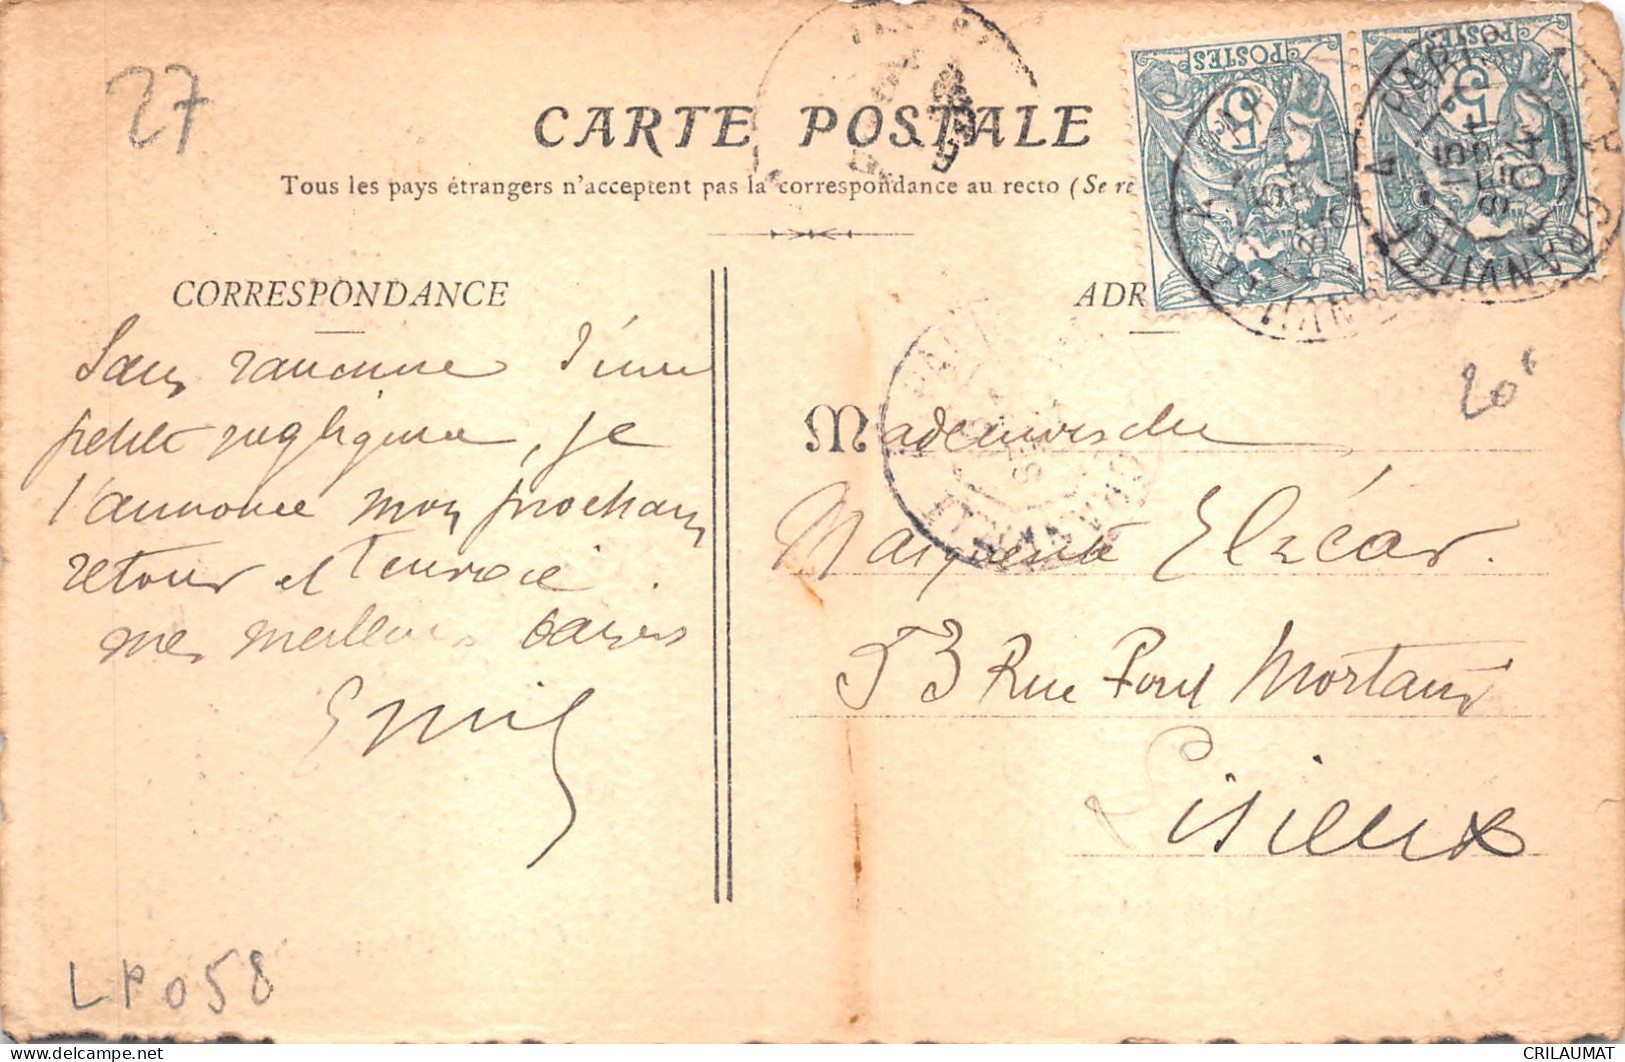 27
CARTE POSTALE
Tous les pays étrangers n'acceptent pas la correspondance au recto (Se re
POSTES 5c
POSTES 5c
PARIS A GRANVILLE
15 SEPT 04
CORRESPONDANCE
ADR
Sans rancune d'une
petite negligence, je
t'annonce mon prochain
retour et t'envoie
mes meilleurs baisers
Emile
20f
Mademoiselle
Marguerite Elzéar.
53 Rue Pont Mortain
Lisieux
LP 058
delcampe.net
CRILAUMAT